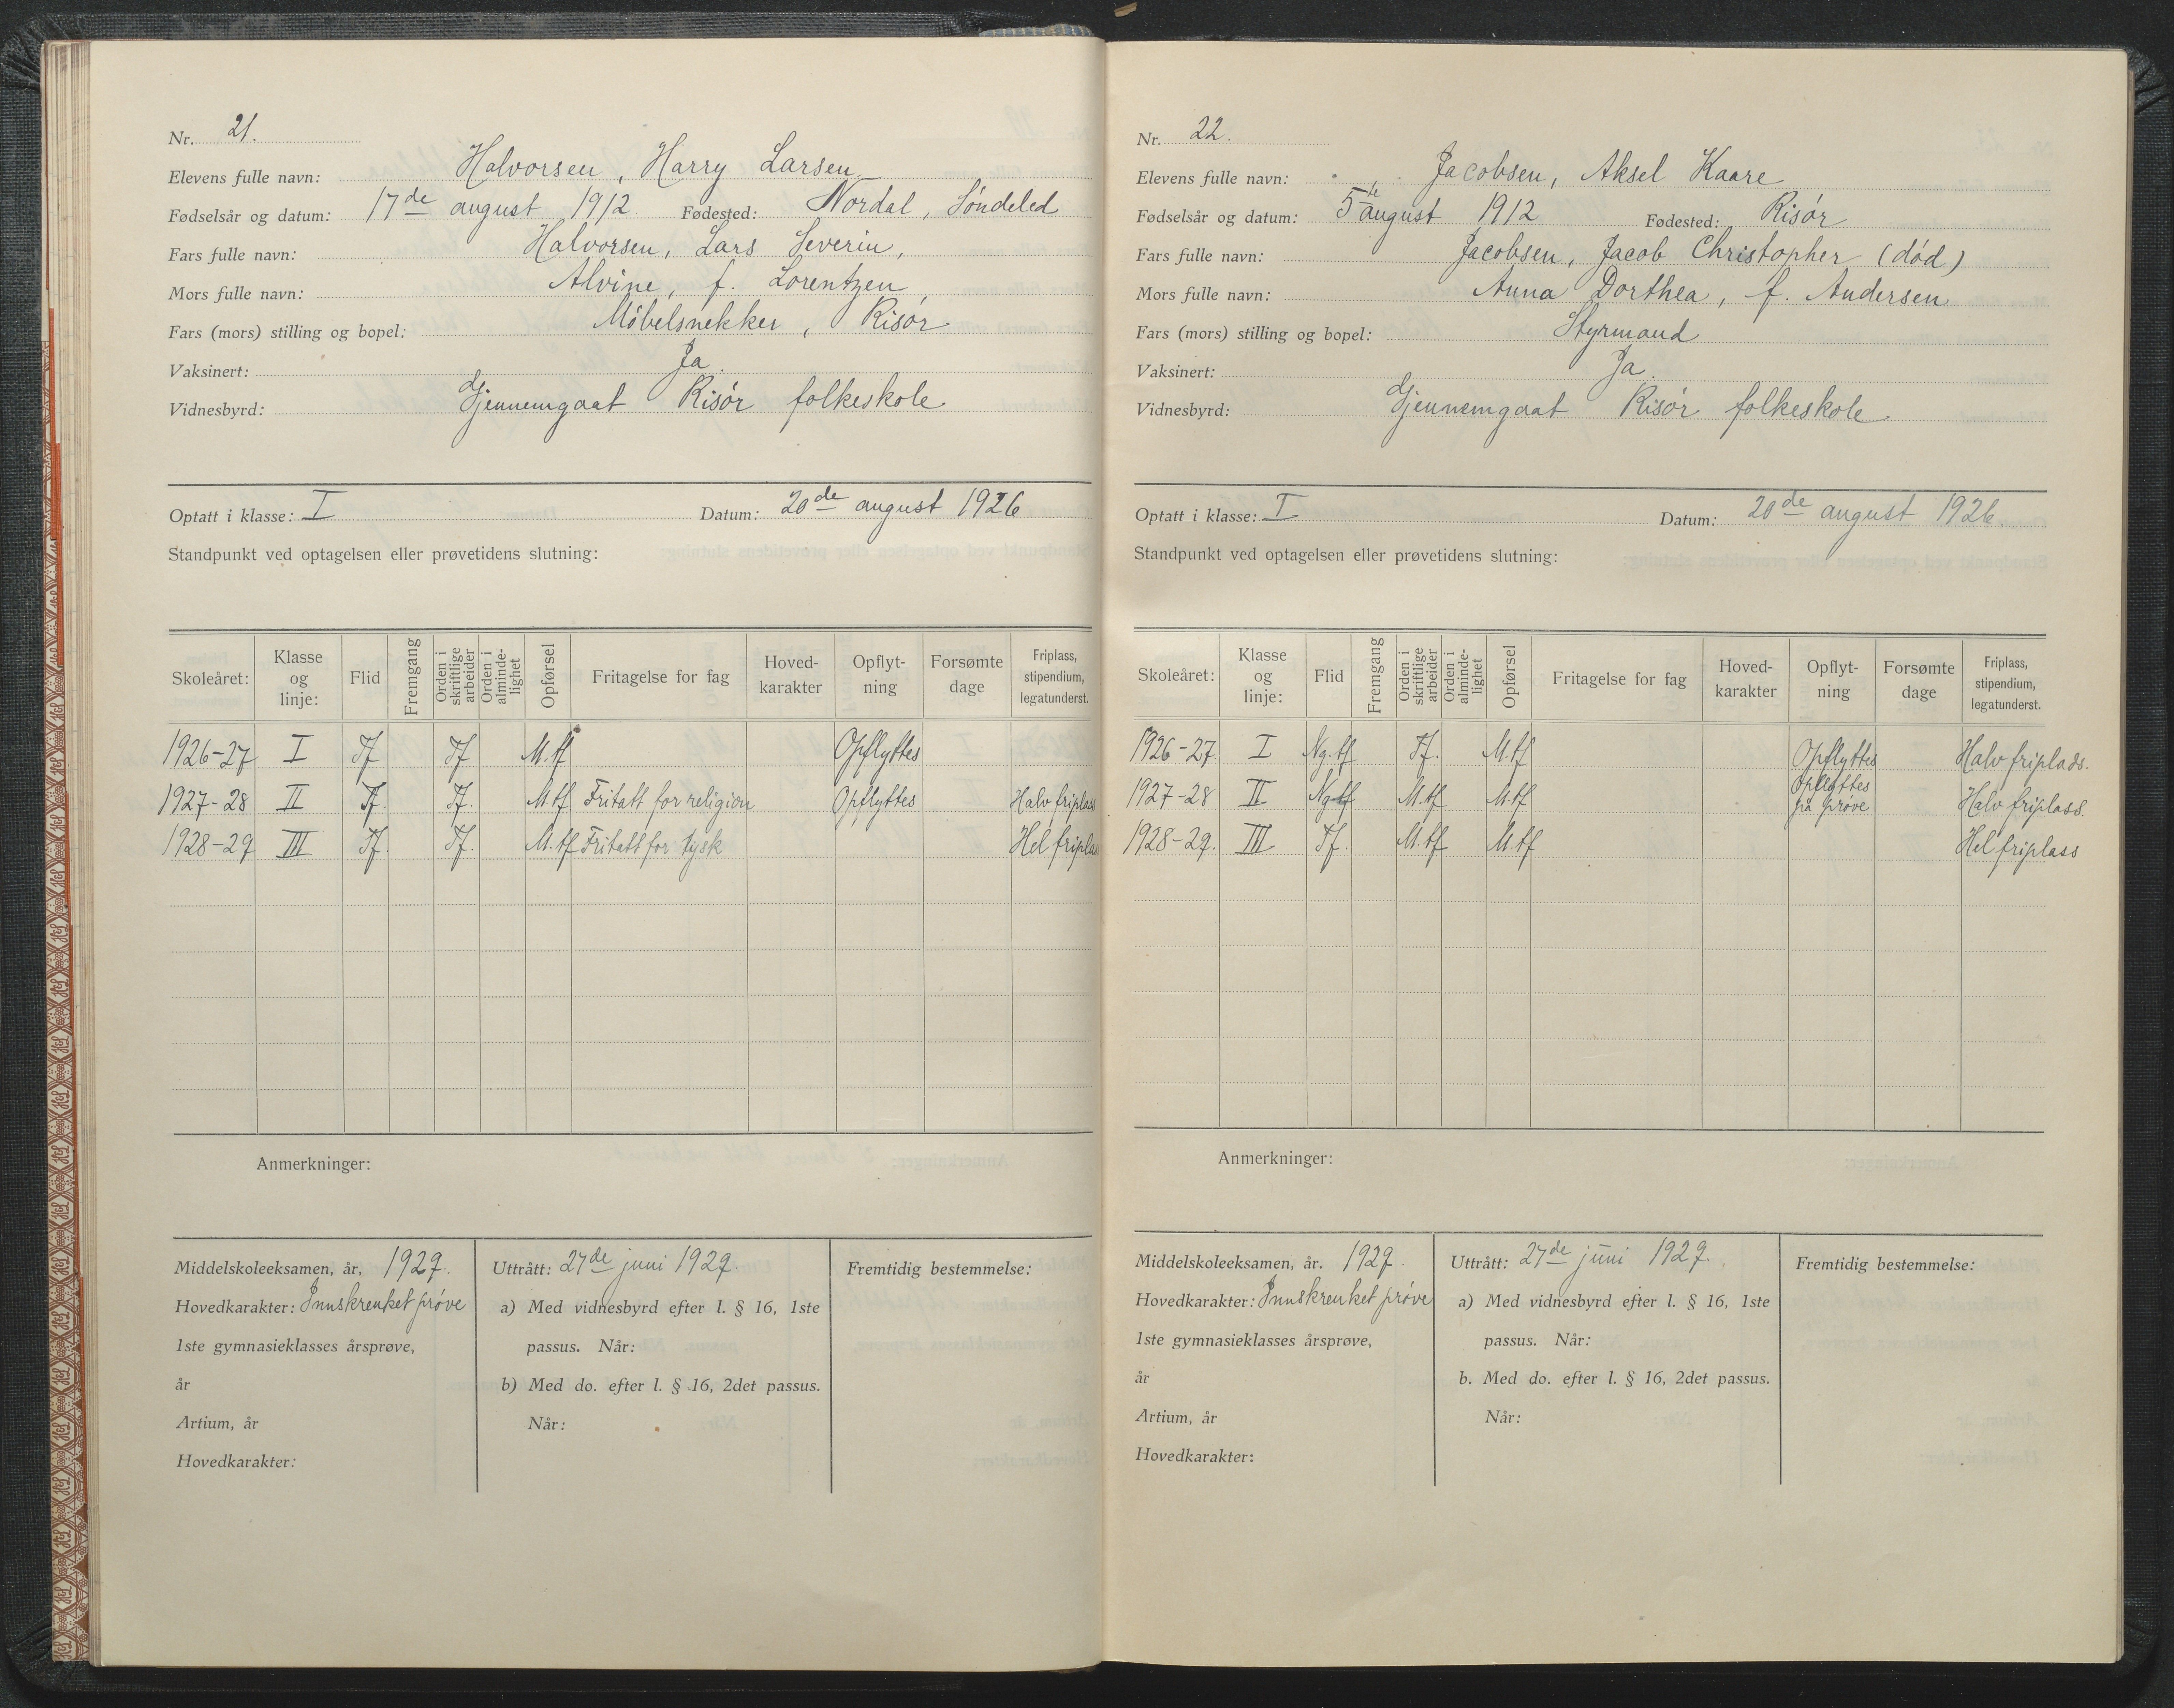 Nr. 21.
Elevens fulle navn: Halvorsen, Harry Larsen.
Fødselsår og datum: 17de august 1912 Fødested: Nordal, Søndeled
Fars fulle navn: Halvorsen, Lars Severin,
Mors fulle navn: Alvine, f. Lorentzen
Fars (mors) stilling og bopel: Møbelsnekker, Risør
Vaksinert: Ja.
Vidnesbyrd: Gjennemgaat Risør folkeskole
Optatt i klasse: I Datum: 20de august 1926
Standpunkt ved optagelsen eller prøvetidens slutning:
Skoleåret: Klasse og linje: Flid Fremgang Orden i skriftlige arbeider Orden i alminde-lighet Opførsel Fritagelse for fag Hoved-karakter Opflyt-ning Forsømte dage Friplass, stipendium, legatunderst.
1926-27 I Tf Tf M.tf Opflyttes
1927-28 II Tf. Tf. M.tf Fritatt for religion Opflyttes Halv friplass
1928-29 III Tf. Tf. M.tf Fritatt for tysk Hel friplass
Anmerkninger:
Middelskoleeksamen, år, 1929.
Hovedkarakter: Innskrenket prøve
1ste gymnasieklasses årsprøve,
år
Artium, år
Hovedkarakter:
Uttrått: 27de juni 1929.
a) Med vidnesbyrd efter l. § 16, 1ste
passus. Når:
b) Med do. efter l. § 16, 2det passus.
Når:
Fremtidig bestemmelse:
Nr. 22.
Elevens fulle navn: Jacobsen, Aksel Kaare
Fødselsår og datum: 5te august 1912 Fødested: Risør
Fars fulle navn: Jacobsen, Jacob Christopher (død)
Mors fulle navn: Anna Dorthea, f. Andersen
Fars (mors) stilling og bopel: Styrmand
Vaksinert: Ja.
Vidnesbyrd: Gjennemgaat Risør folkeskole
Optatt i klasse: I Datum: 20de august 1926
Standpunkt ved optagelsen eller prøvetidens slutning:
Skoleåret: Klasse og linje: Flid Fremgang Orden i skriftlige arbeider Orden i alminde-lighet Opførsel Fritagelse for fag Hoved-karakter Opflyt-ning Forsømte dage Friplass, stipendium, legatunderst.
1926-27 I Ng.tf Tf. M.tf Opflyttes Halv friplads.
1927-28 II Ng.tf M.tf M.tf Opflyttes på prøve Halv friplass.
1928-29. III Tf. M.tf M.tf Hel friplass
Anmerkninger:
Middelskoleeksamen, år. 1929.
Hovedkarakter: Innskrenket prøve
1ste gymnasieklasses årsprøve,
år
Artium, år
Hovedkarakter:
Uttrått: 27de juni 1929.
a) Med vidnesbyrd efter l. § 16, 1ste
passus. Når:
b. Med do. efter l. § 16, 2det passus.
Når:
Fremtidig bestemmelse: